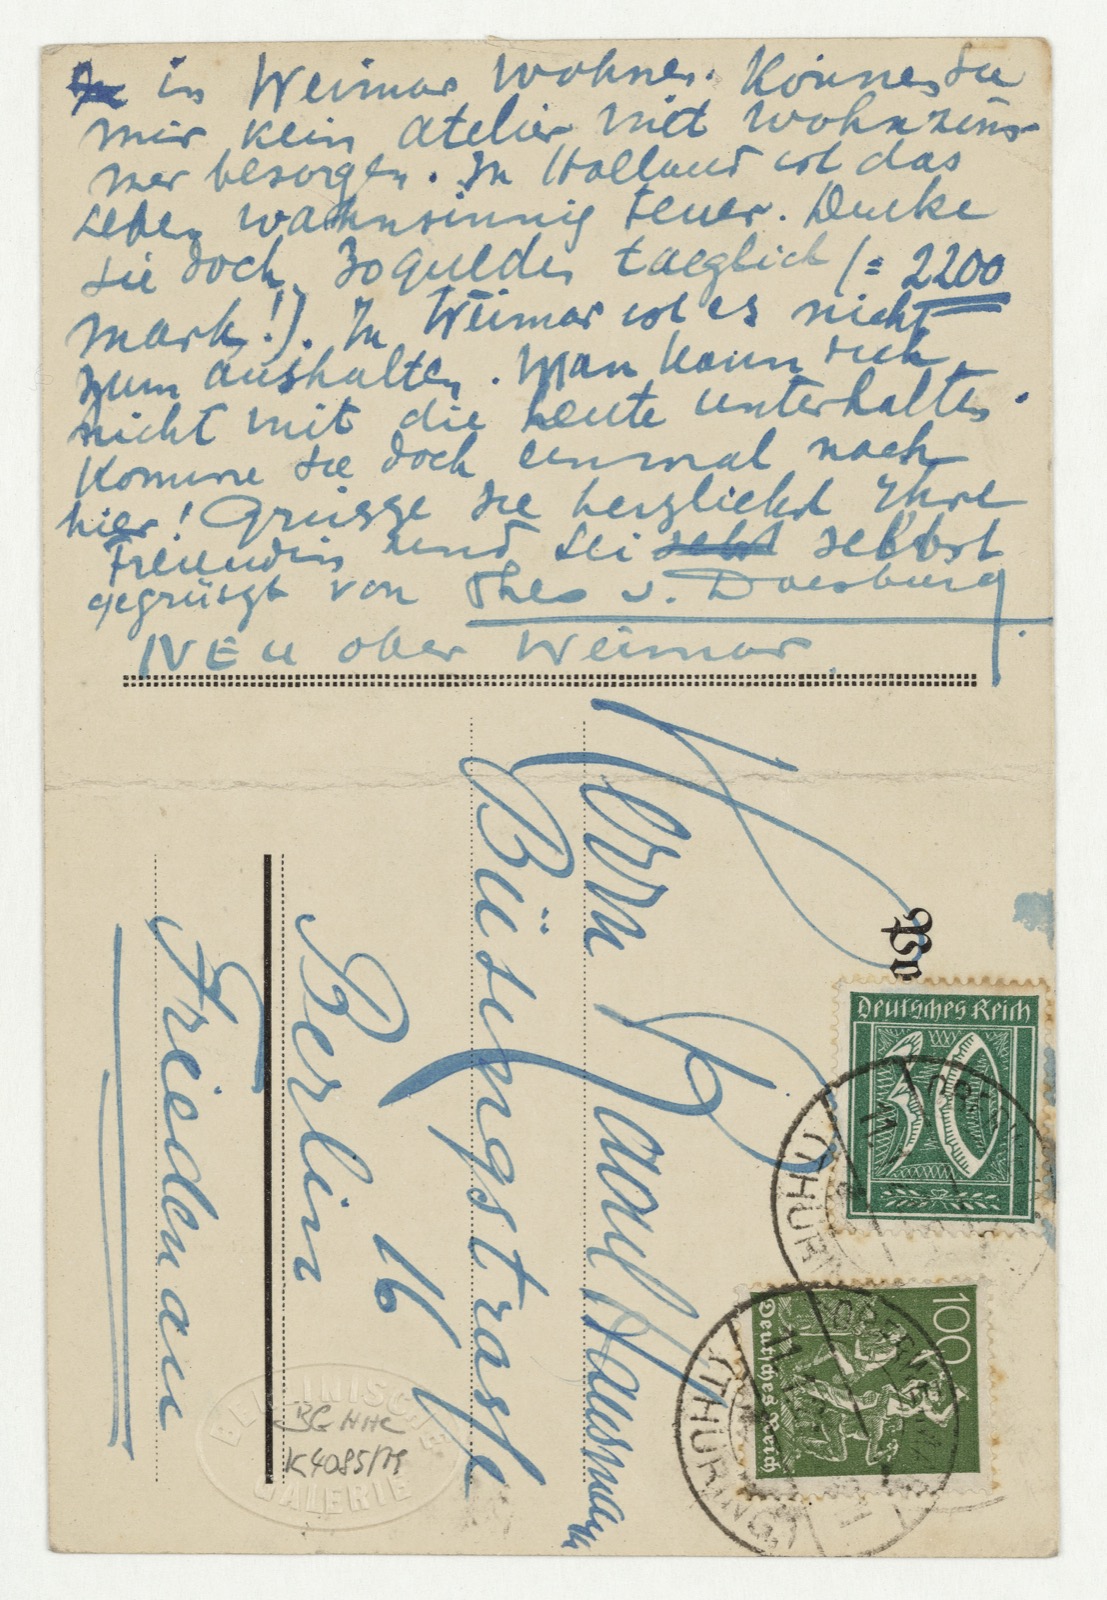 in Weimar wohnen. Können sie
mir kein atelier mit wohnzim-
mer besorgen. In Holland ist das
Leben wahnsinnig teuer. Denke
sie doch 30 gulden taeglich (= 2200
mark!). In Weimar ist es nicht
zum aushalten. Man kann sich
nicht mit die leute unterhalten.
Komme sie doch einmal nach
hier! Grüsze sie herzlichst Ihre
Freundin und sei selbst
gegrüszt von Theo v. Doesburg
NEU ober Weimar.
Herrn Raoul Hausmann
Büsingstrasse
16
Berlin
Friedenau
Po
Deutsches Reich
30
(THÜRI
100
Deutsches Reich
(THÜRING
BERLINISCHE
GALERIE
BG HHC
K 4085/79